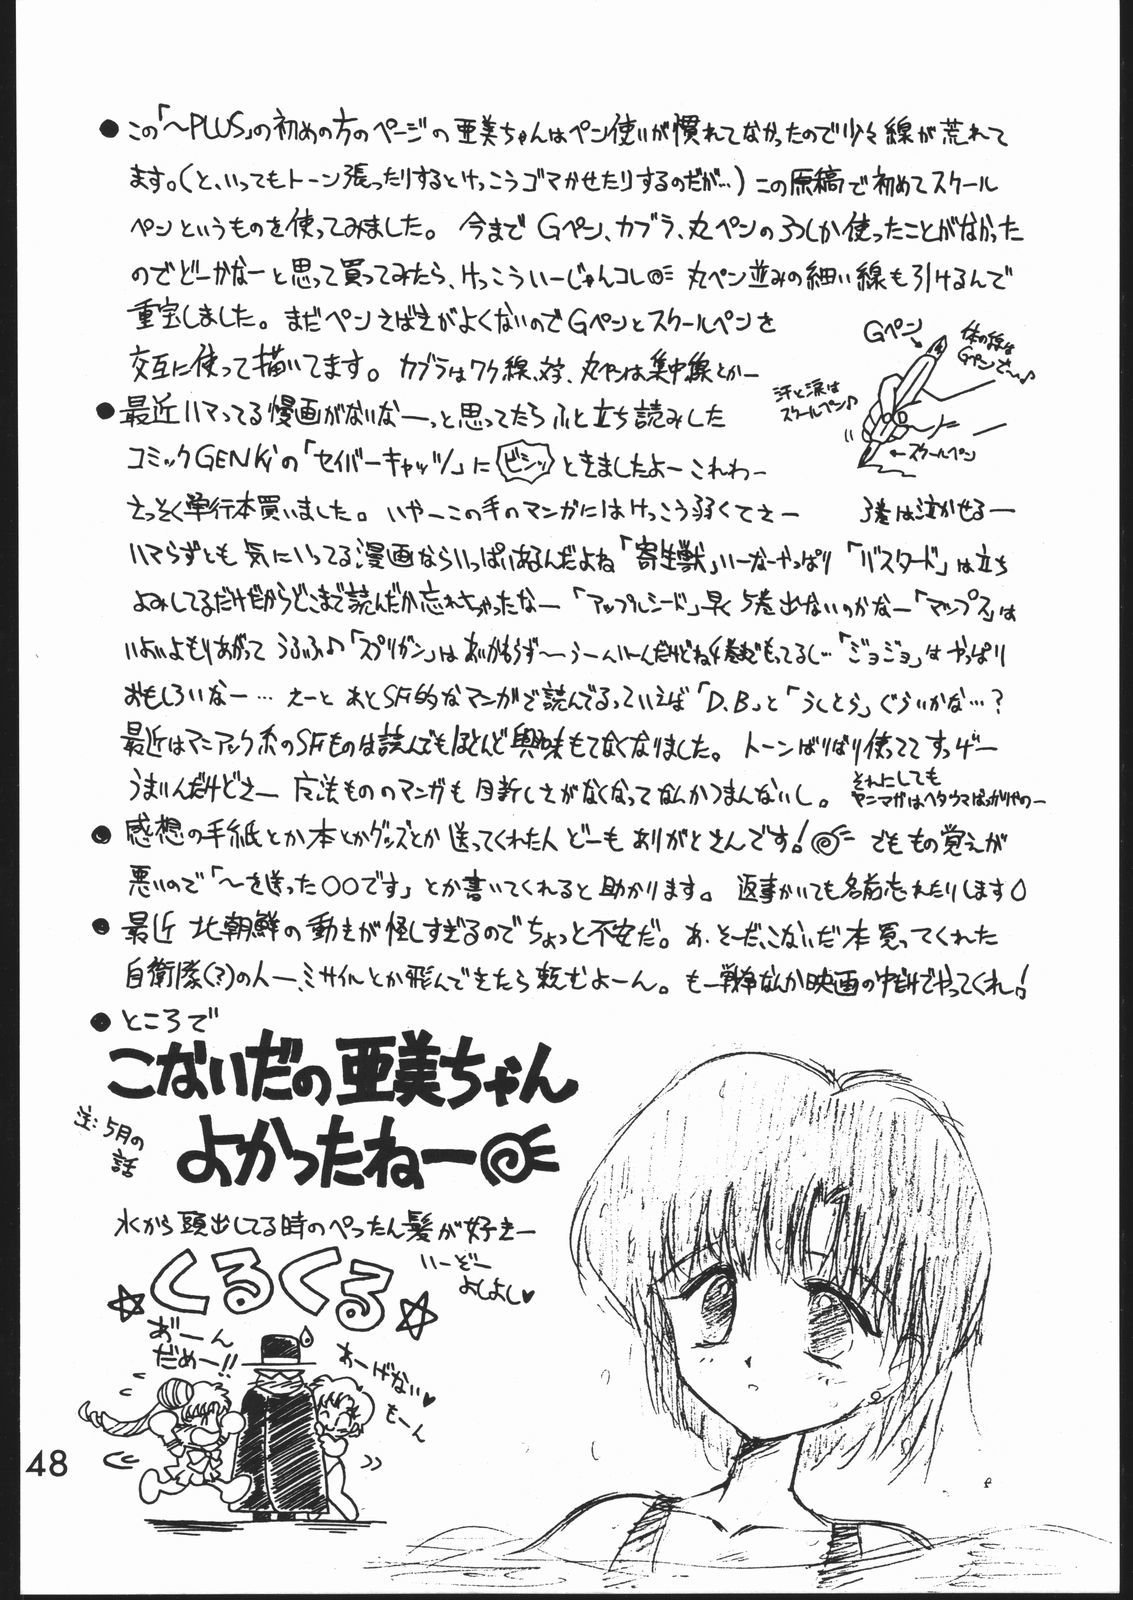 ●この「～PLUS」の初めの方のページの亜美ちゃんはペン使いが慣れてなかったので少々線が荒れて
ます。(と、いってもトーン張ったりするとけっこうゴマかせたりするのだが…)この原稿で初めてスクール
ペンというものを使ってみました。今までGペン、カブラ、丸ペンの3つしか使ったことがなかった
のでどーかなーと思って買ってみたら、けっこういーじゃんコレ 丸ペン並みの細い線も引けるんで
重宝しました。まだペンさばきがよくないのでGペンとスクールペンを
交互に使って描いてます。カブラはワク線、文字、丸ペンは集中線とかー
Gペン
体の線は
Gペンでぇ～♪
汗と涙は
スクールペン♪
←スクールペン
●最近ハマってる漫画がないなーーっと思ってたらふと立ち読みした
コミックGENKiの「セイバーキャッツ」に ビシッ ときましたよー これわー
さっそく単行本買いました。いやーこの手のマンガにはけっこう弱くてさー 3巻は泣かせるー
ハマらずとも気にいってる漫画ならいっぱいあるんだよね「寄生獣」いーなーやっぱり「バスタード」は立ち
よみしてるだけだからどこまで読んだか忘れちゃったなー「アップルシード」早く5巻出ないのかなー「マップス」は
いよいよもりあがって うふふ♪「スプリガン」はあいかわらず～うーんいーんだけどね 4巻までもってるし…「ジョジョ」はやっぱり
おもしろいなー…えーと あとSF的なマンガで読んでるっていえば「D.B」と「うしとら」ぐらいかな…?
最近はマニアック系のSFものは読んでもほとんど興味もてなくなりました。トーンばりばり使っててすっげー
うまいんだけどさー 魔法もののマンガも目新しさがなくなってなんかつまんないし。
それにしても
ヤニマガはヘタウマばっかりやのー
●感想の手紙とか本とかグッズとか送ってくれた人どーもありがとさんです! でももの覚えが
悪いので「～を送った○○です」とか書いてくれると助かります。返事かいても名前忘れたりします
●最近北朝鮮の動きが怪しすぎるのでちょっと不安だ。あ、そーだ、こないだ本買ってくれた
自衛隊(?)の人ー、ミサイルとか飛んできたら頼むよーん。もー戦争なんか映画の中だけでやってくれ!
●ところで
こないだの亜美ちゃん
よかったねー
注:5月の
話
水から頭出してる時のぺったん髪が好きー
くるくる
いーどー
よしよし♥
あ゛ーん
だめー!!
あーげない♥
もーん
48